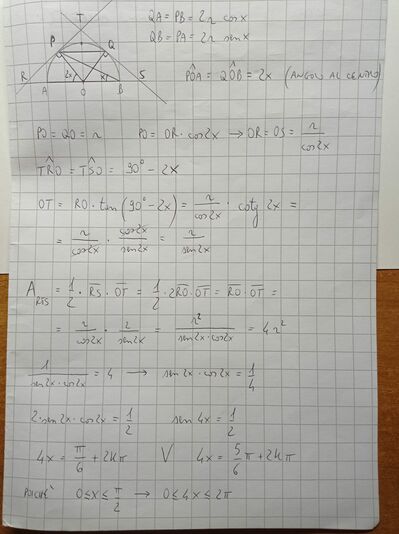 T
P Q
R 2x x S
A O B
QA = PB = 2r cos x
QB = PA = 2r sen x
PÔA = QÔB = 2x (ANGOLO AL CENTRO)
PO = QO = r PO = OR · cos2x → OR = OS = r/cos2x
TR̂O = TŜO = 90° - 2x
OT = RO · tan(90° - 2x) = r/cos2x · cotg 2x =
= r/cos2x · cos2x/sen2x = r/sen2x
A_RTS = 1/2 · RS · OT = 1/2 · 2RO · OT = RO · OT =
= r/cos2x · r/sen2x = r²/(sen2x · cos2x) = 4r²
1/(sen2x · cos2x) = 4 → sen2x · cos2x = 1/4
2 · sen2x · cos2x = 1/2 sen 4x = 1/2
4x = π/6 + 2kπ V 4x = 5/6 π + 2kπ
POICHÉ 0 ≤ x ≤ π/2 → 0 ≤ 4x ≤ 2π